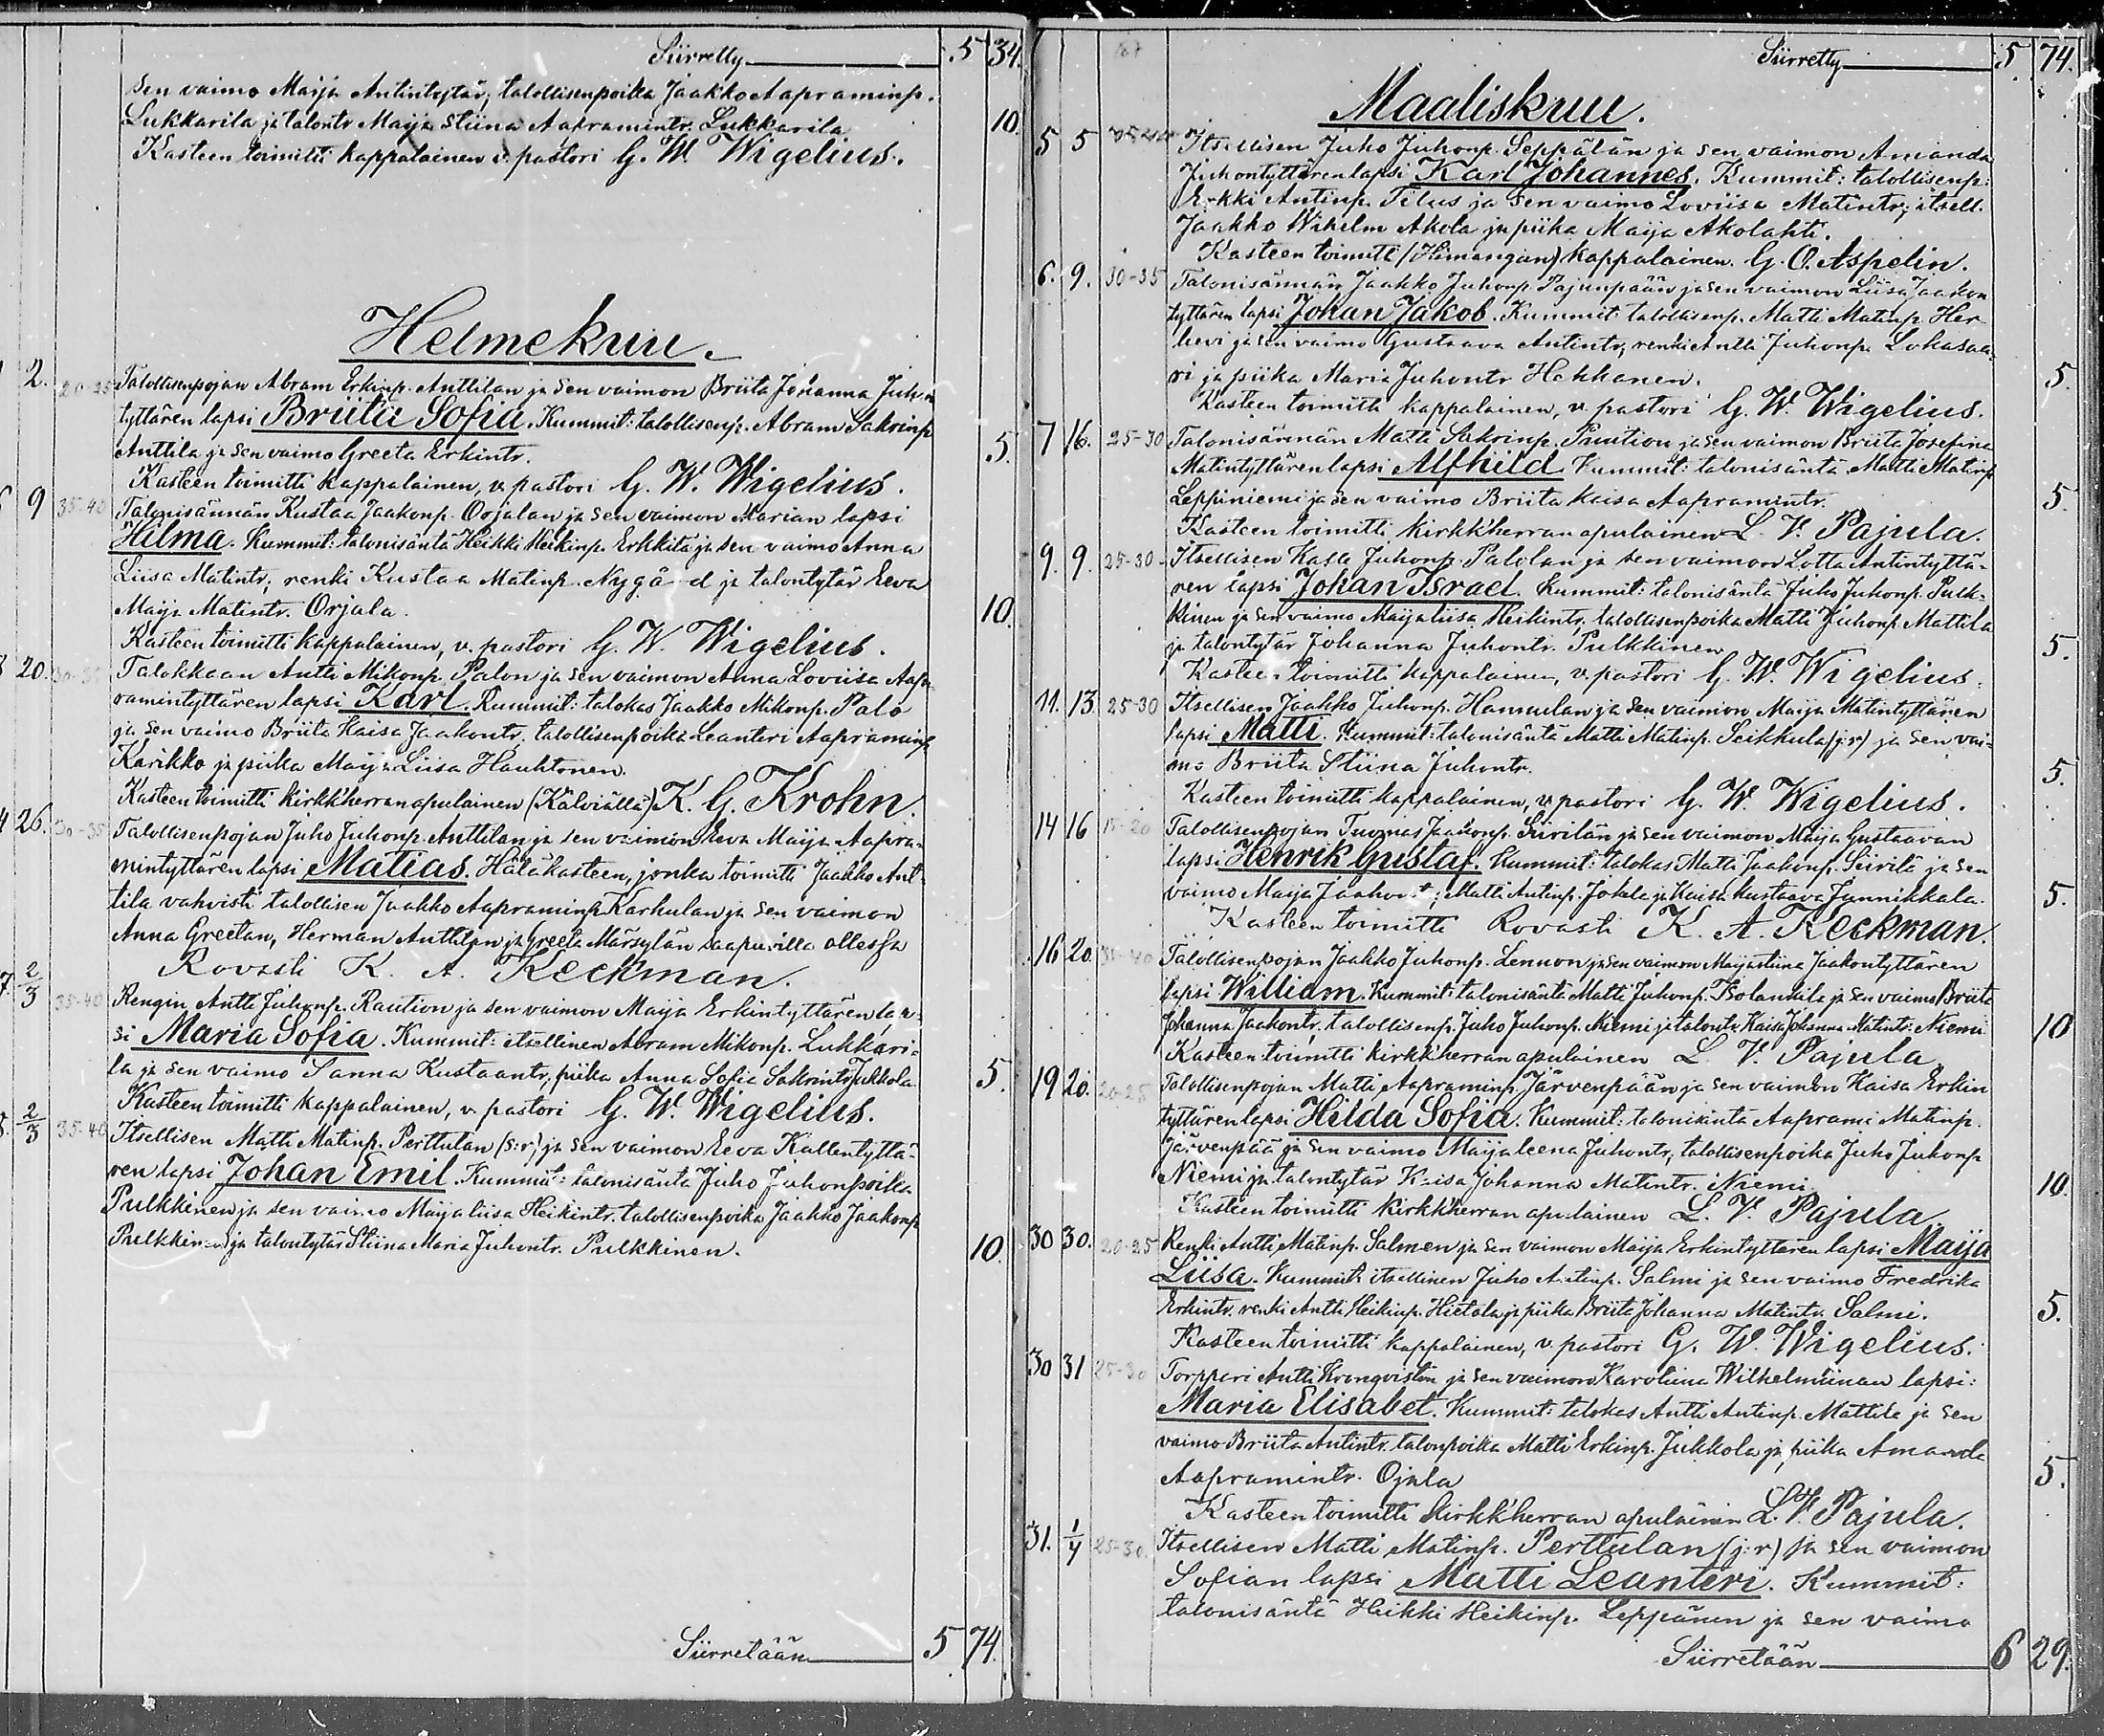 Siirretty 5 34.
sen vaimo Maija Antintytär, talollisenpoika Jaakko Aapraminp.
Lukkarila ja talontr Maija Stiina Aapramintr. Lukkarila 10.
Kasteen toimitti kappalainen v. pastori G. W. Wigelius.
Helmekuu.
2. 20-25 Talollisenpojan Abram Erkinp. Anttilan ja sen vaimon Briita Johanna Juhon
tyttären lapsi Briita Sofia. Kummit: talollisenp. Abram Sakrinp
Anttila ja sen vaimo Greeta Erkintr. 5.
Kasteen toimitti kappalainen, v. pastori G. W. Wigelius.
9 35-40 Talonisännän Kustaa Jaakonp. Orjalan ja sen vaimon Marian lapsi
Hilma. Kummit: talonisäntä Heikki Heikinp. Erkkilä ja sen vaimo Anna
Liisa Matintr, renki Kustaa Matinp. Nygård ja talontytär Eeva
Maija Matintr. Orjala. 10.
Kasteen toimitti kappalainen, v. pastori G. W. Wigelius.
20. 30-35 Talokkaan Antti Mikonp. Palon ja sen vaimon Anna Loviisa Aap-
ramintyttären lapsi Karl. Kummit: talokas Jaakko Mikonp. Palo
ja sen vaimo Briita Kaisa Jaakontr, talollisenpoika Leanteri Aapraminp
Karikko ja piika Maija Liisa Hauhtonen.
Kasteen toimitti kirkkherranapulainen (Kälviällä) K. G. Krohn.
26. 30-35 Talollisenpojan Juho Juhonp. Anttilan ja sen vaimon Eeva Maija Aapra-
mintyttären lapsi Matias. Hätäkasteen, jonka toimitti Jaakko Ant-
tila vahvisti talollisen Jaakko Aapraminp Karhulan ja sen vaimon
Anna Greetan, Herman Anttilan ja Greeta Märsylän saapuvilla ollessa
Rovasti K. A. Keckman.
7. 2/3 35-40 Rengin Antti Juhonp. Raution ja sen vaimon Maija Erkintyttären lap-
si Maria Sofia. Kummit: itsellinen Abram Mikonp. Lukkari-
la ja sen vaimo Sanna Kustaantr, piika Anna Sofia Sakrintr Jukkola. 5.
Kasteen toimitti kappalainen, v. pastori G. W. Wigelius.
2/3 35-40 Itsellisen Matti Matinp. Perttulan (s:r) ja sen vaimon Eeva Kallentyttä-
ren lapsi Johan Emil. Kummit: talonisäntä Juho Juhonpoika
Pulkkinen ja sen vaimo Maijaliisa Heikintr. talollisenpoika Jaakko Jaakonp
Pulkkinen ja talontytär Stiina Maria Juhontr. Pulkkinen. 10.
Siirretään 5 74.
Siirretty 5 74.
Maaliskuu.
5 5 Itsellisen Juho Juhonp. Seppälän ja sen vaimon Amanda
Juhontyttären lapsi Karl Johannes. Kummit: talollisenp:
Erkki Antinp. Tilus ja sen vaimo Loviisa Matintr, itsell.
Jaakko Wihelm Akola ja piika Maija Akolahti.
Kasteen toimitti (Himangan) kappalainen. G. O. Aspelin.
6. 9. 30-35 Talonisännän Jaakko Juhonp. Pajunpään ja sen vaimon Liisa Jaakon
tyttären lapsi Johan Jakob. Kummit: talollisenp. Matti Matinp. Her
levi ja sen vaimo Gustaava Antintr, renki Antti Juhonp. Lohasaa-
ri ja piika Maria Juhontr Hakkanen. 5.
Kasteen toimitti kappalainen, v. pastori G. W. Wigelius.
7 16. 25-30 Talonisännän Matti Sakrinp. Puution ja sen vaimon Briita Josefina
Matintyttären lapsi Alfhild Kummit: talonisäntä Matti Matinp
Leppiniemi ja sen vaimo Briita Kaisa Aapramintr. 5.
Kasteen toimitti kirkkherran apulainen L. V. Pajula.
9. 9. 25-30 Itsellisen Kalle Juhonp. Palolan ja sen vaimon Lotta Antintyttä-
ren lapsi Johan Israel. Kummit: talonisäntä Juho Juhonp. Pulk-
kinen ja sen vaimo Maijaliisa Heikintr, talollisenpoika Matti Juhonp. Mattila
ja talontytär Johanna Juhontr. Pulkkinen 5.
Kasteen toimitti kappalainen, v. pastori G. W. Wigelius.
11. 13 25-30 Itsellisen Jaakko Juhonp. Hannulan ja sen vaimon Maija Matintyttären
lapsi Matti. Kummit: talonisäntä Matti Matinp. Peikkula (j:r) ja sen vai-
mo Briita Stiina Juhontr. 5.
Kasteen toimitti kappalainen, v. pastori G. W. Wigelius.
14 16 15-20 Talollisenpojan Tuomas Jaakonp. Siirilän ja sen vaimon Maija Gustaavan
lapsi Henrik Gustaf. Kummit: talokas Matti Jaakonp. Siirilä ja sen
vaimo Maija Jaakontr; Matti Antinp. Jokela ja Kaisa Kustaava Junnikkala. 5.
Kasteen toimitti Rovasti K. A. Keckman.
16 20. 35-40 Talollisenpojan Jaakko Juhonp. Lennon ja sen vaimon Maijastiina Jaakontyttären
lapsi William. Kummit: talonisäntä Matti Juhonp. Isolankila ja sen vaimo Briita
Johanna Jaakontr, talollisenp. Juho Juhonp. Niemi ja talontr Kaisa Johanna Matintr. Niemi 10
Kasteen toimitti kirkkherran apulainen L. V. Pajula
19 20. 20-25 Talollisenpojan Matti Aapraminp. Järvenpään ja sen vaimon Kaisa Erkin
tyttären lapsi Hilda Sofia. Kummit: talonisäntä Aaprami Matinp.
Järvenpää ja sen vaimo Maijaleena Juhontr, talollisenpoika Juho Juhonp
Niemi ja talontytär Kaisa Johanna Matintr. Niemi 10.
Kasteen toimitti Kirkkherran apulainen L. V. Pajula
30 30. 20-25 Renki Antti Matinp. Salmen ja sen vaimon Maija Erkintyttären lapsi Maija
Liisa. Kummit: itsellinen Juho Antinp. Salmi ja sen vaimo Fredrika
Erkintr. renki Antti Heikinp. Hietala ja piika Briita Johanna Matintr. Salmi. 5.
Kasteen toimitti kappalainen, v. pastori G. W. Wigelius.
30 31 25-30 Torpperi Antti Kronqvistin ja sen vaimon Karoliina Wilhelmiinan lapsi:
Maria Elisabet. Kummit: talokas Antti Antinp. Mattila ja sen
vaimo Briita Antintr. talonpoika Matti Erkinp. Jukkola ja piika Amanda
Aapramintr. Ojala 5.
Kasteen toimitti Kirkkherran apulainen L. V. Pajula.
31. 1/4 25-30. Itsellisen Matti Matinp. Perttulan (j:r) ja sen vaimon
Sofian lapsi Matti Leanteri. Kummit:
talonisäntä Heikki Heikinp. Leppänen ja sen vaimo
Siirretään 6 29.